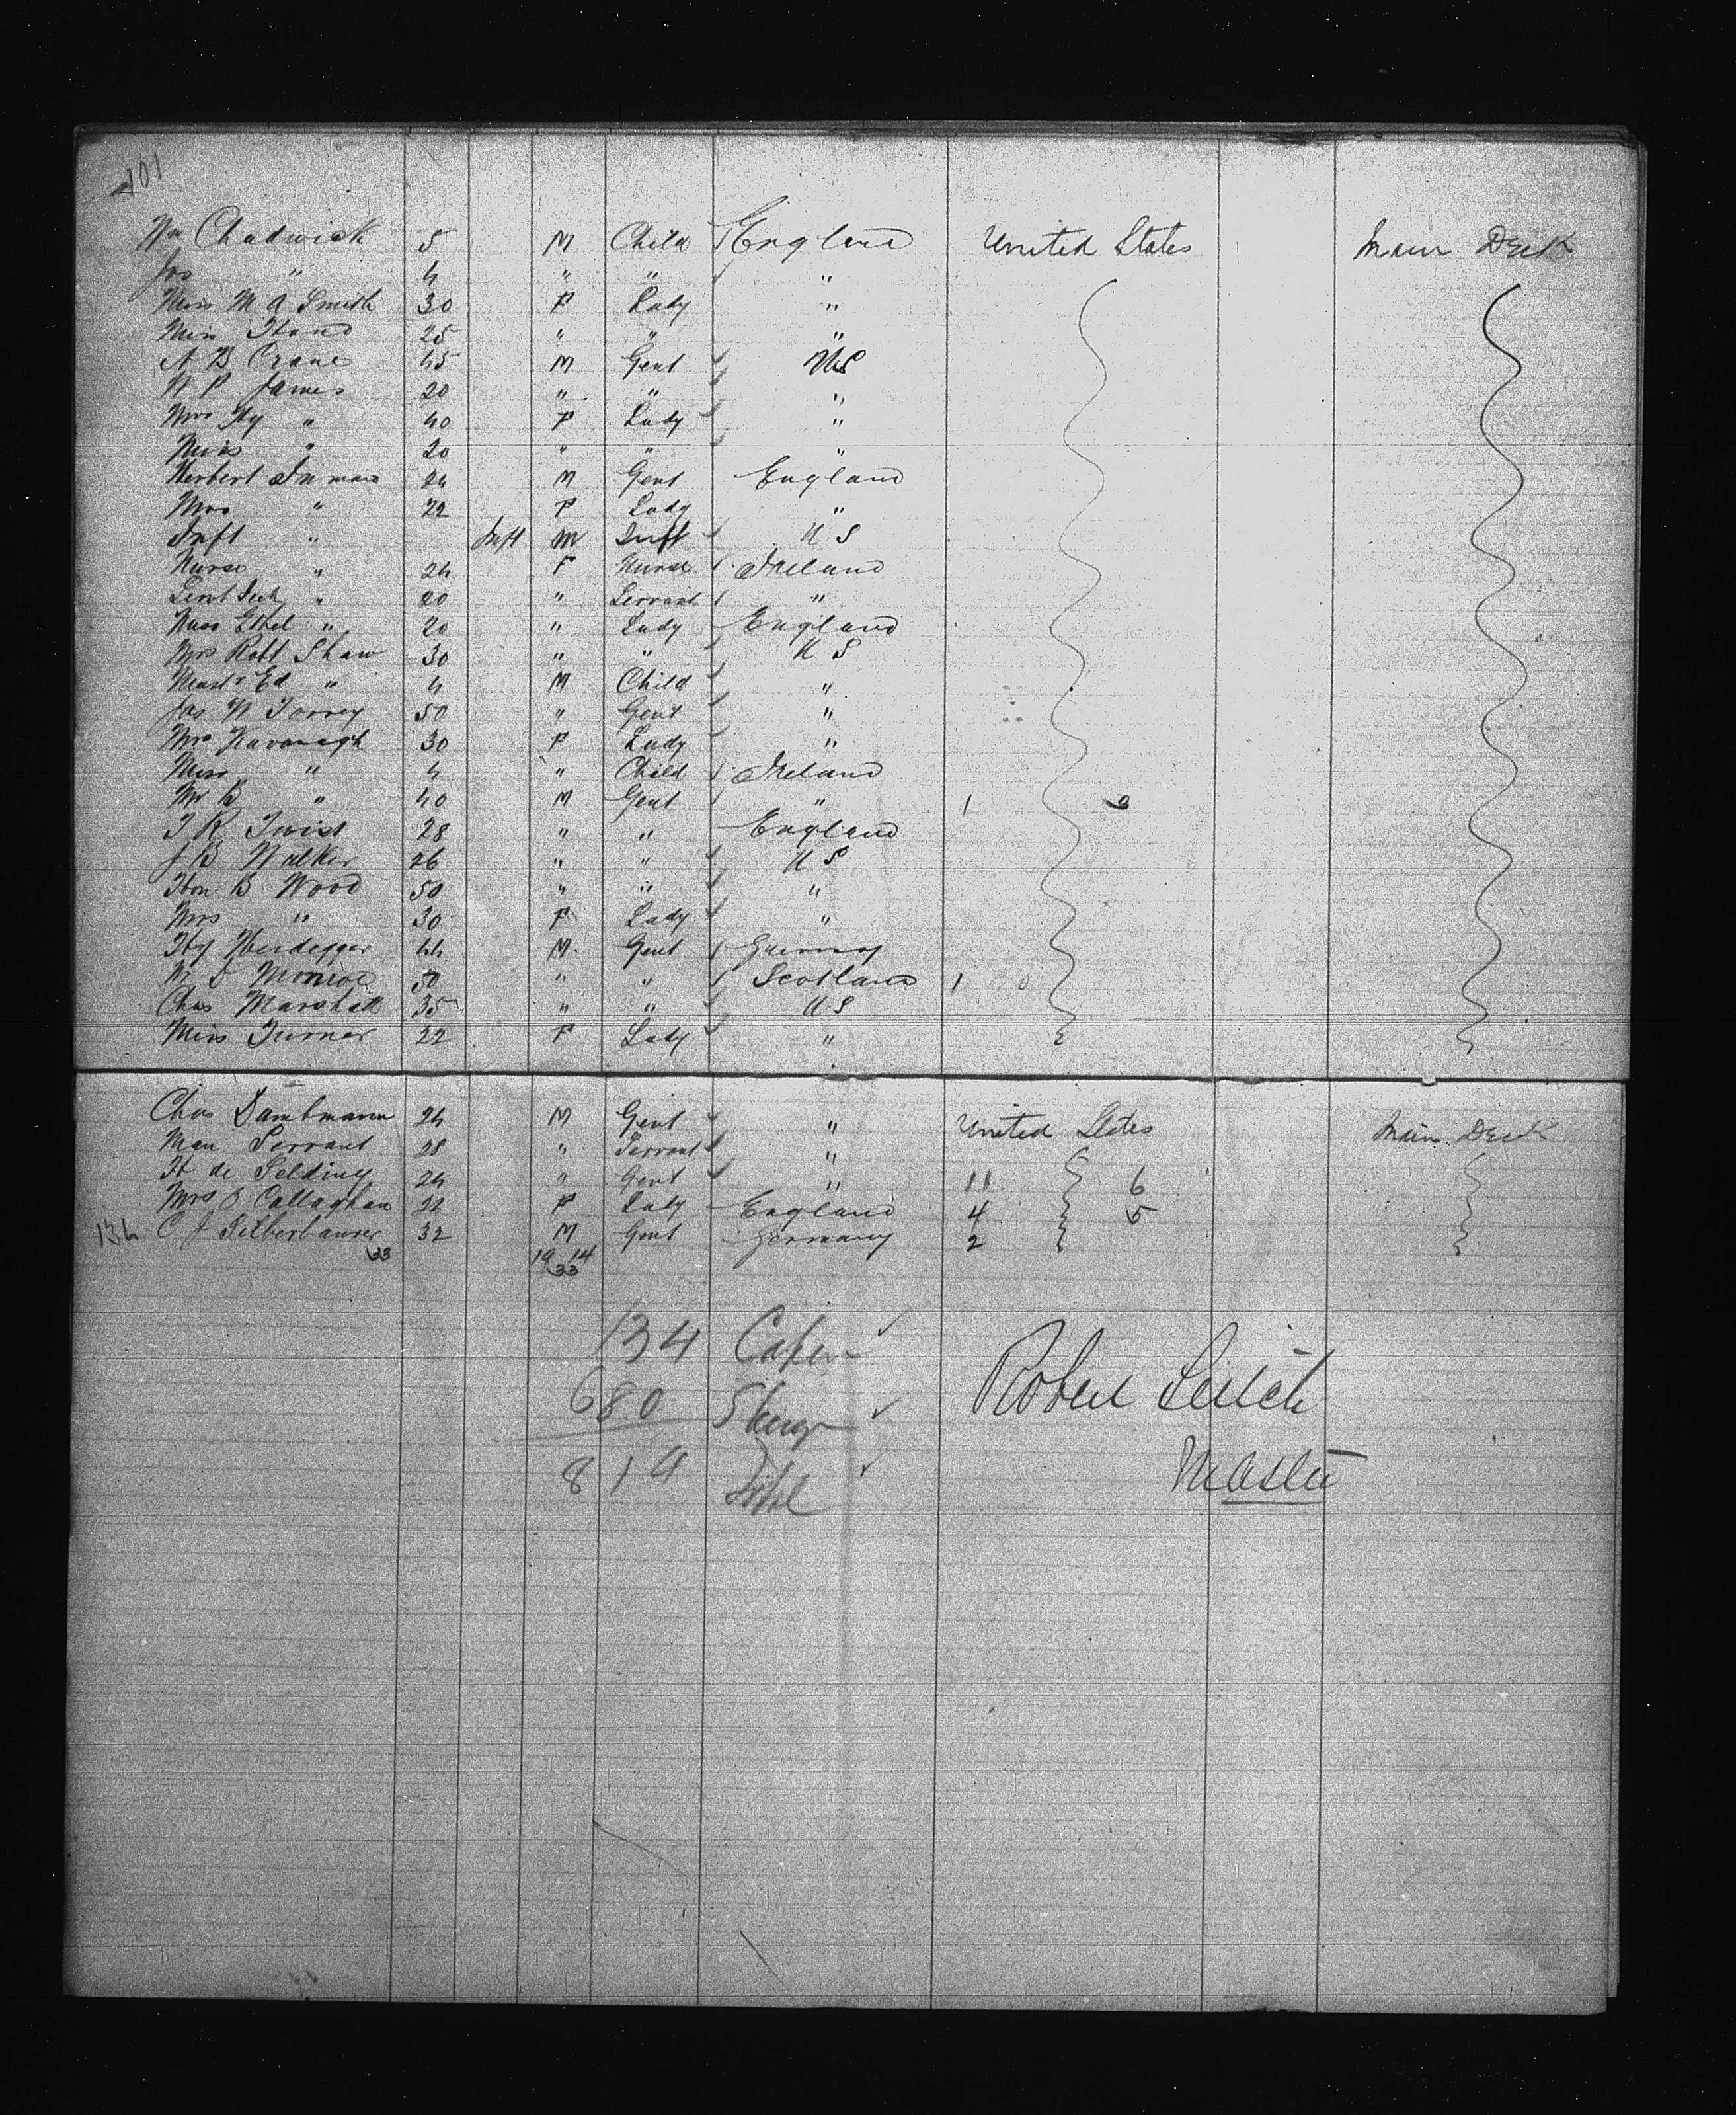 101
Wm Chadwick 5 M Child England United States Main Deck
Jas " 4 " " "
Miss M A Smith 30 F Lady "
Miss Hand 25 " " "
A B Crane 45 M Gent US
W P James 20 " " "
Mrs Hy " 40 F Lady "
Miss " 20 " " "
Herbert Inman 24 M Gent England
Mrs " 22 F Lady "
Inft " Inft M Inft U S
Nurse " 24 F Nurse Ireland
" 20 " Servant "
Miss Ethel " 20 " Lady England
Mrs Robt Shaw 30 " " U S
Mastr Ed " 4 M Child "
Jas N Torrey 50 " Gent "
Mrs Kavanagh 30 F Lady "
Miss " 4 " Child Ireland
Mr B " 40 M Gent " 1
T R Twist 28 " " England
J B Walker 26 " " U S
Hon B Wood 50 " " "
Mrs " 30 F Lady "
Hy Heidegger 44 M Gent
W D Monroe 50 " " Scotland 1
Chas Marshall 35 " " U S
Miss Turner 22 F Lady "
Chas Dambmann 24 M Gent " United States Main Deck
Man Servant 28 " Servant "
H de Selding 24 " Gent " 11 6
Mrs O Callaghan 22 F Lady England 4 5
134 C J Silberbaurer 32 M Gent Germany 2
33 19 14
33
134 Cabin
680 Steerge
814 Total
Robert Leitch
Master